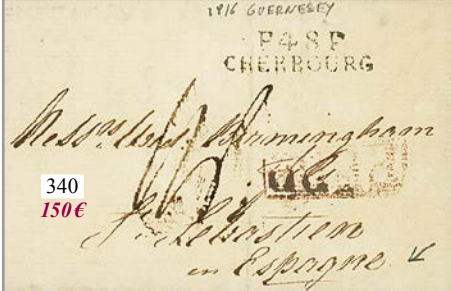 1816 GUERNESEY
P48P
CHERBOURG
Mess.rs Birmingham
340
150€
St. Sébastien
en Espagne